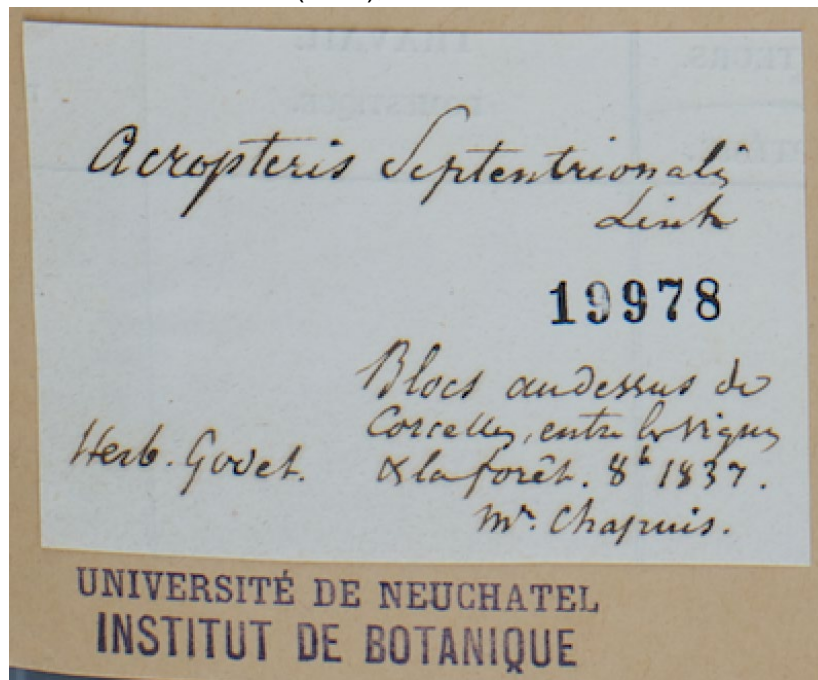 Acropteris Septentrionalis
Link
19978
Blocs audessus de
Corcelles, entre les vignes
Herb. Godet.
& la forêt. 8b 1837.
Mr. Chapuis.
UNIVERSITÉ DE NEUCHATEL
INSTITUT DE BOTANIQUE